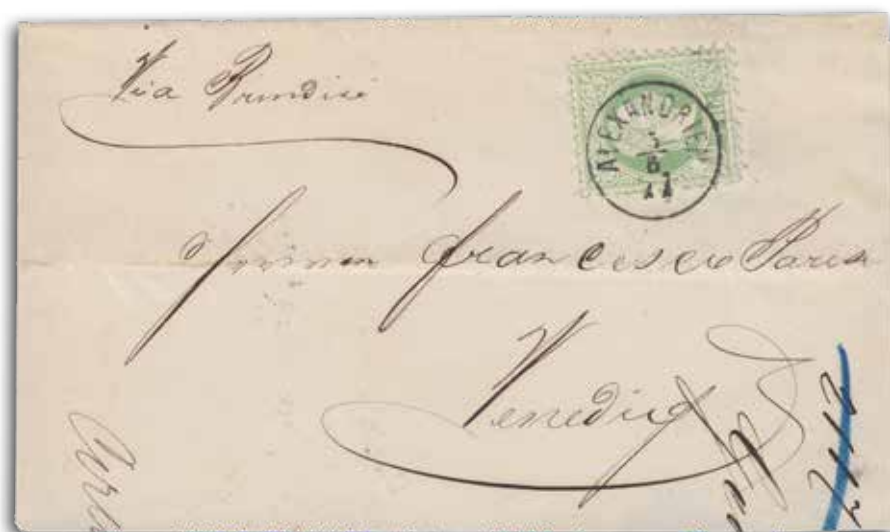 Via Brindisi
ALEXANDRIEN
5
6
Francesco Paris
Venedig